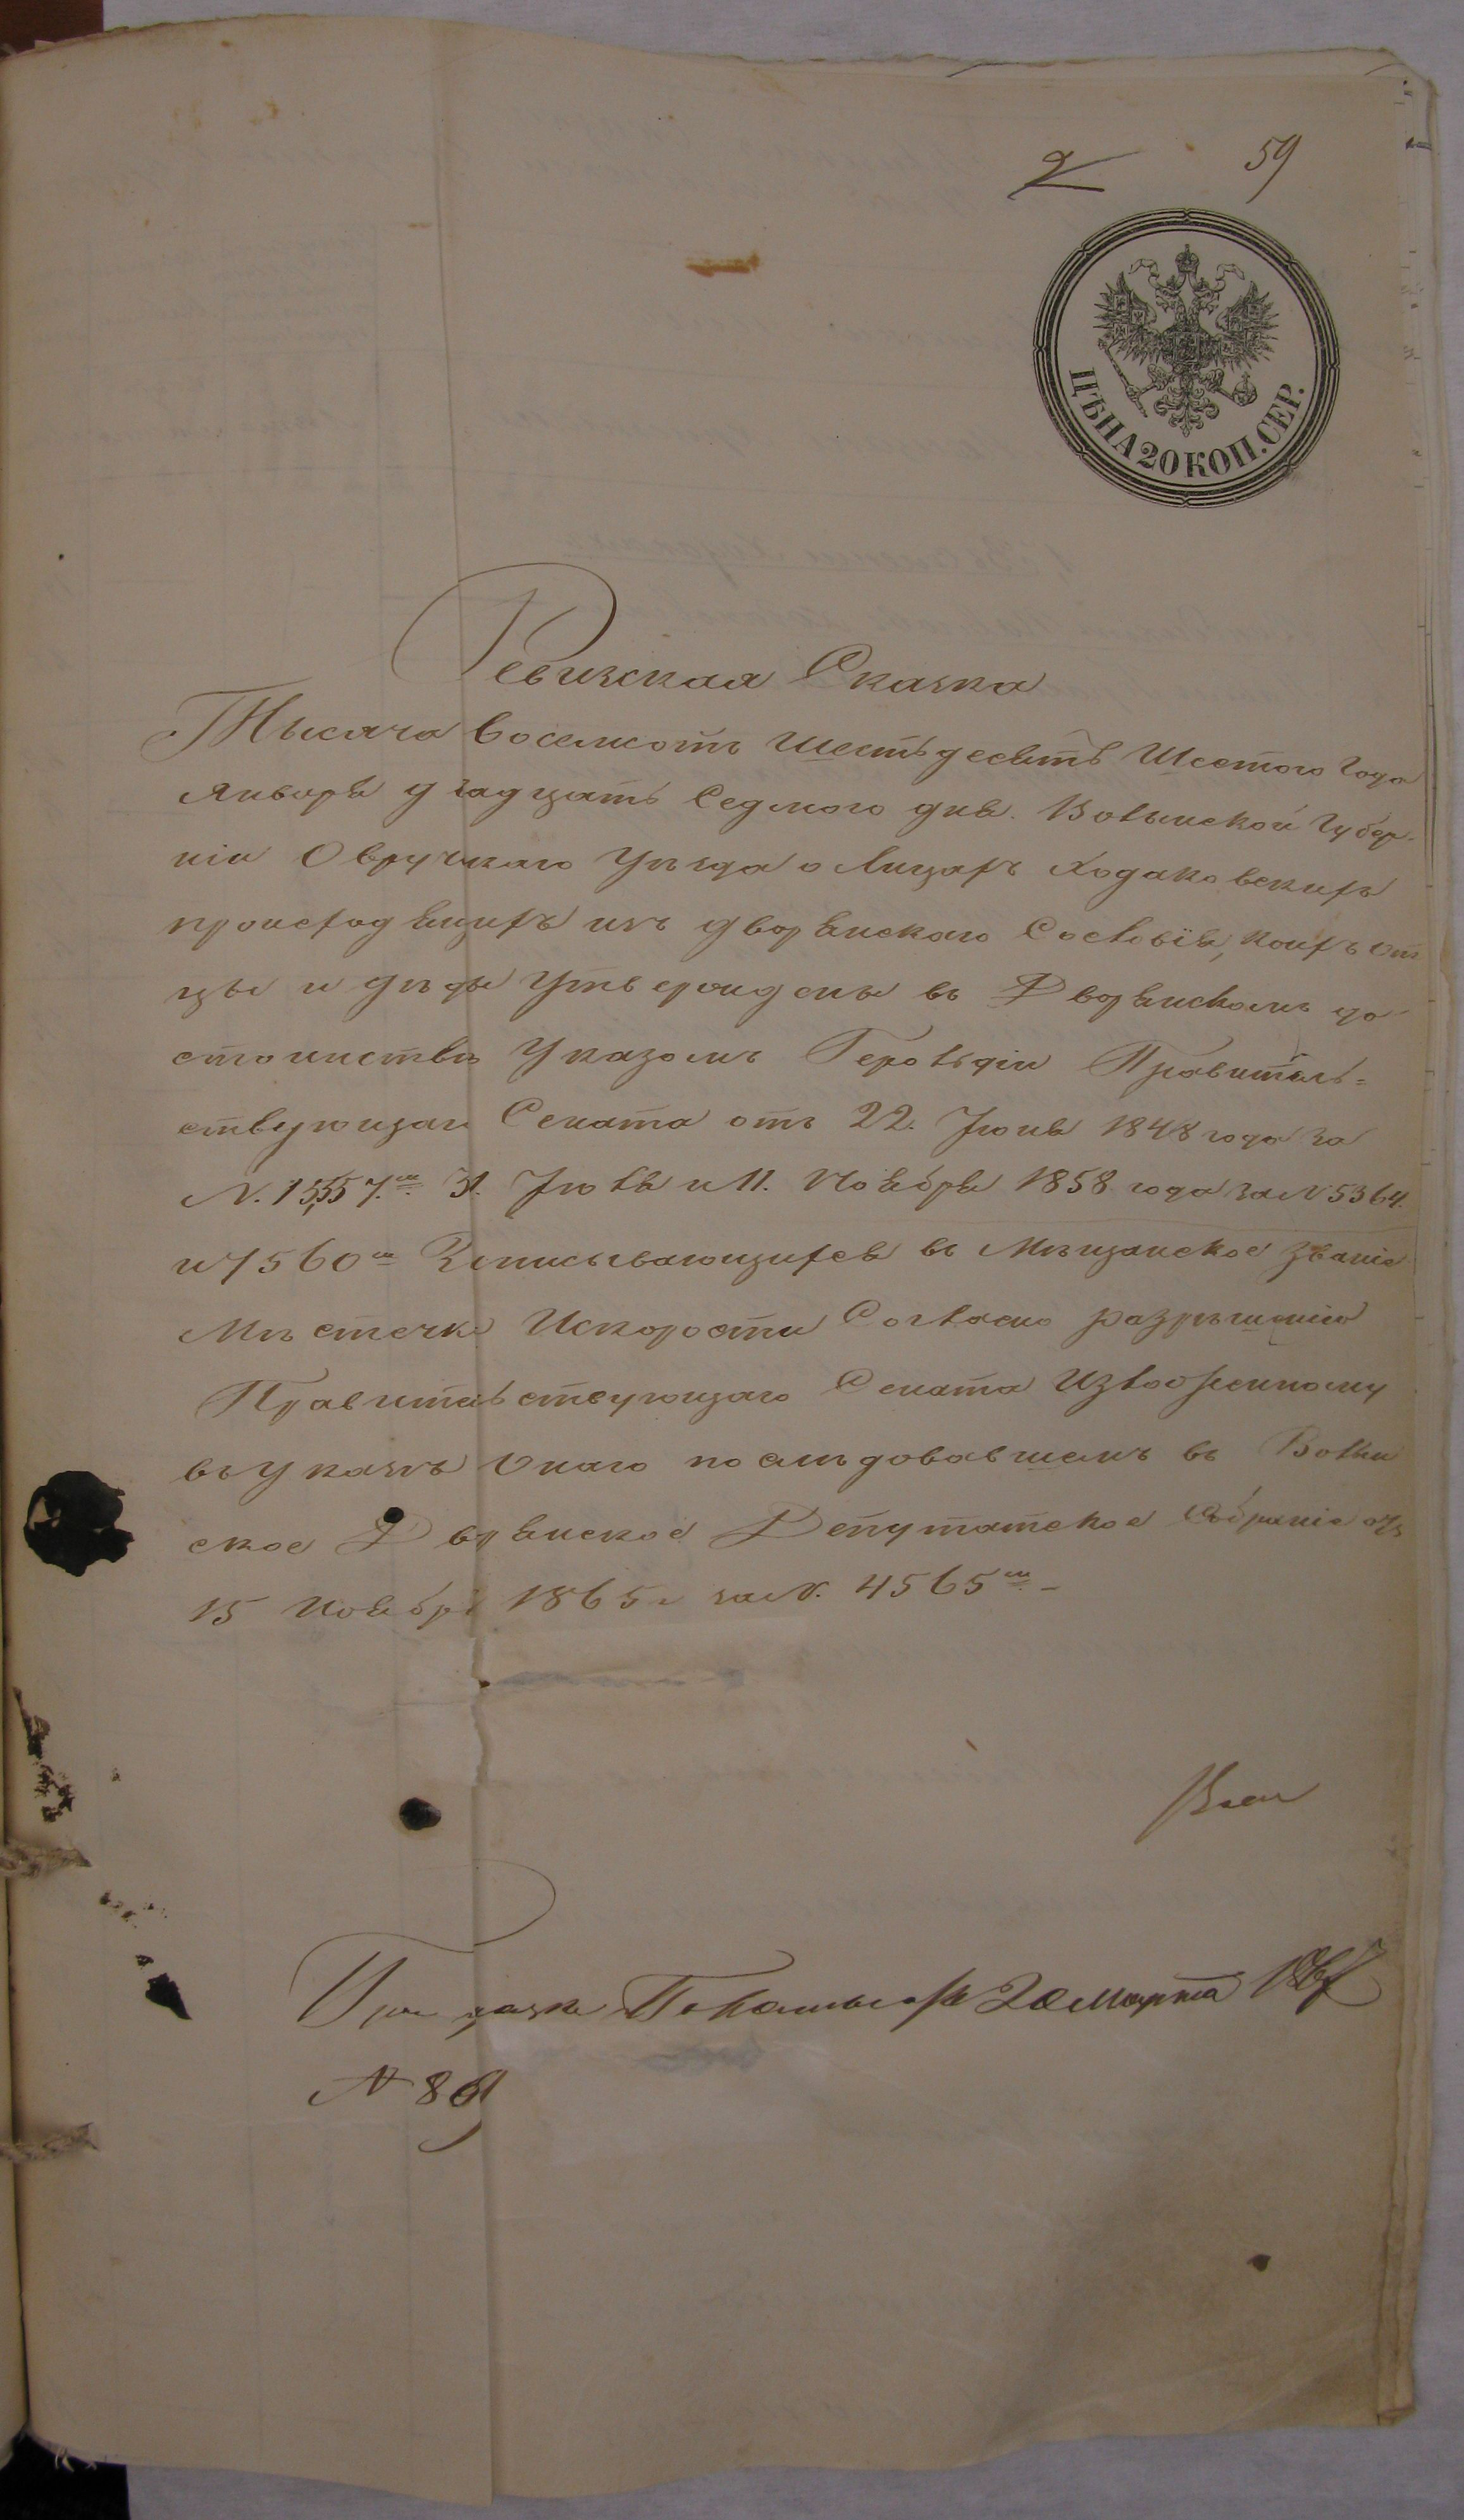 2 59
ЦѢНА 20 КОП. СЕР.
Ревизская Сказка
Тысяча восемсотъ шестьдесятъ шестого года
Января двадцать седмого дня. Волынской Губер-
ніи Овручкаго уѣзда о лицахъ Ходаковскихъ
происходящихъ изъ дворянского сословія, коихъ от
цы и дѣды утверждены въ Дворянскомъ до-
стоинствѣ Указомъ Герольдіи Правитель=
ствующаго Сената отъ 22. Іюня 1848 года за
N. 13,557.мъ 31. Іюля и 11. Ноября 1858 года за N 5364.
и 7560мъ Записывающихся въ Мѣщанское званіе
Мѣстечка Искорости Согласно разрѣшенію
Правительствующаго Сената Изложенному
въ указѣ онаго послѣдовавшемъ въ Волын
ское Дворянское Депутатское собраніе отъ
15 Ноября 1865 г за N. 4565мъ. -
20 Марта 186
N 869